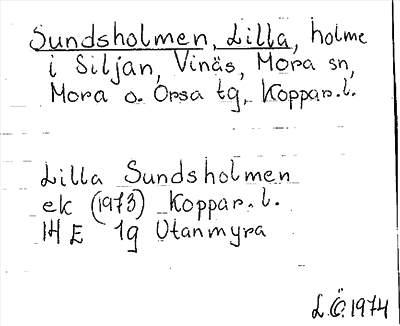 Sundsholmen, Lilla, holme
i Siljan, Vinäs, Mora sn,
Mora o. Orsa tg, Koppar.l.
Lilla Sundsholmen
ek (1973) Koppar.l.
14 E 1g Utanmyra
L.Ö. 1974